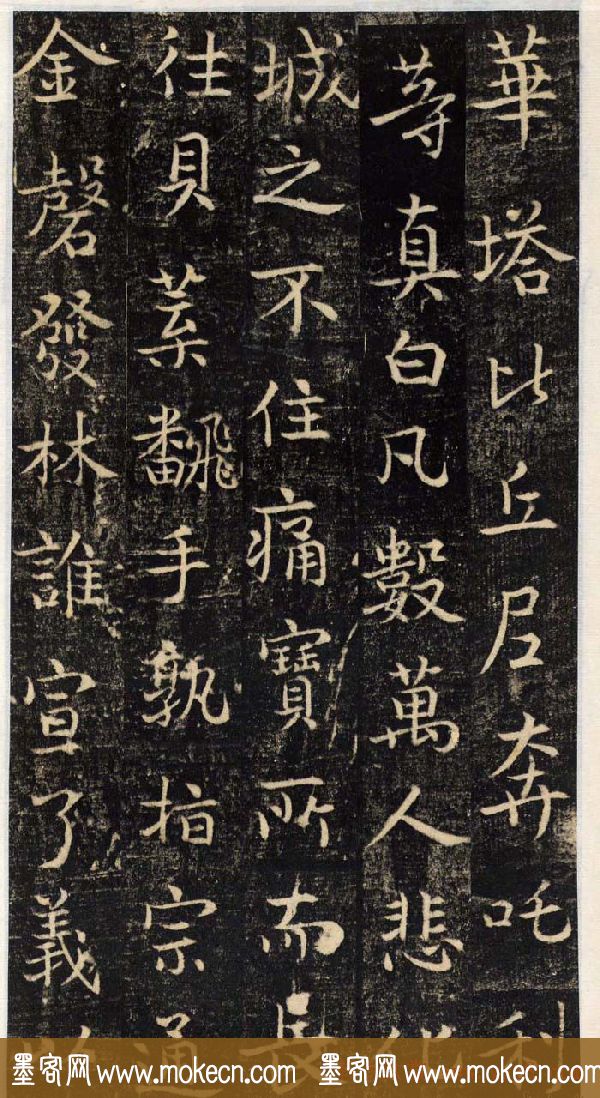 華塔比丘尼奔吒利
䓁真白凡數萬人悲化
城之不住痛寶所而長
往貝葉飜手孰指宗通
金磬發林誰宣了義
墨客网 www.mokecn.com 墨客网 www.mokecn.com